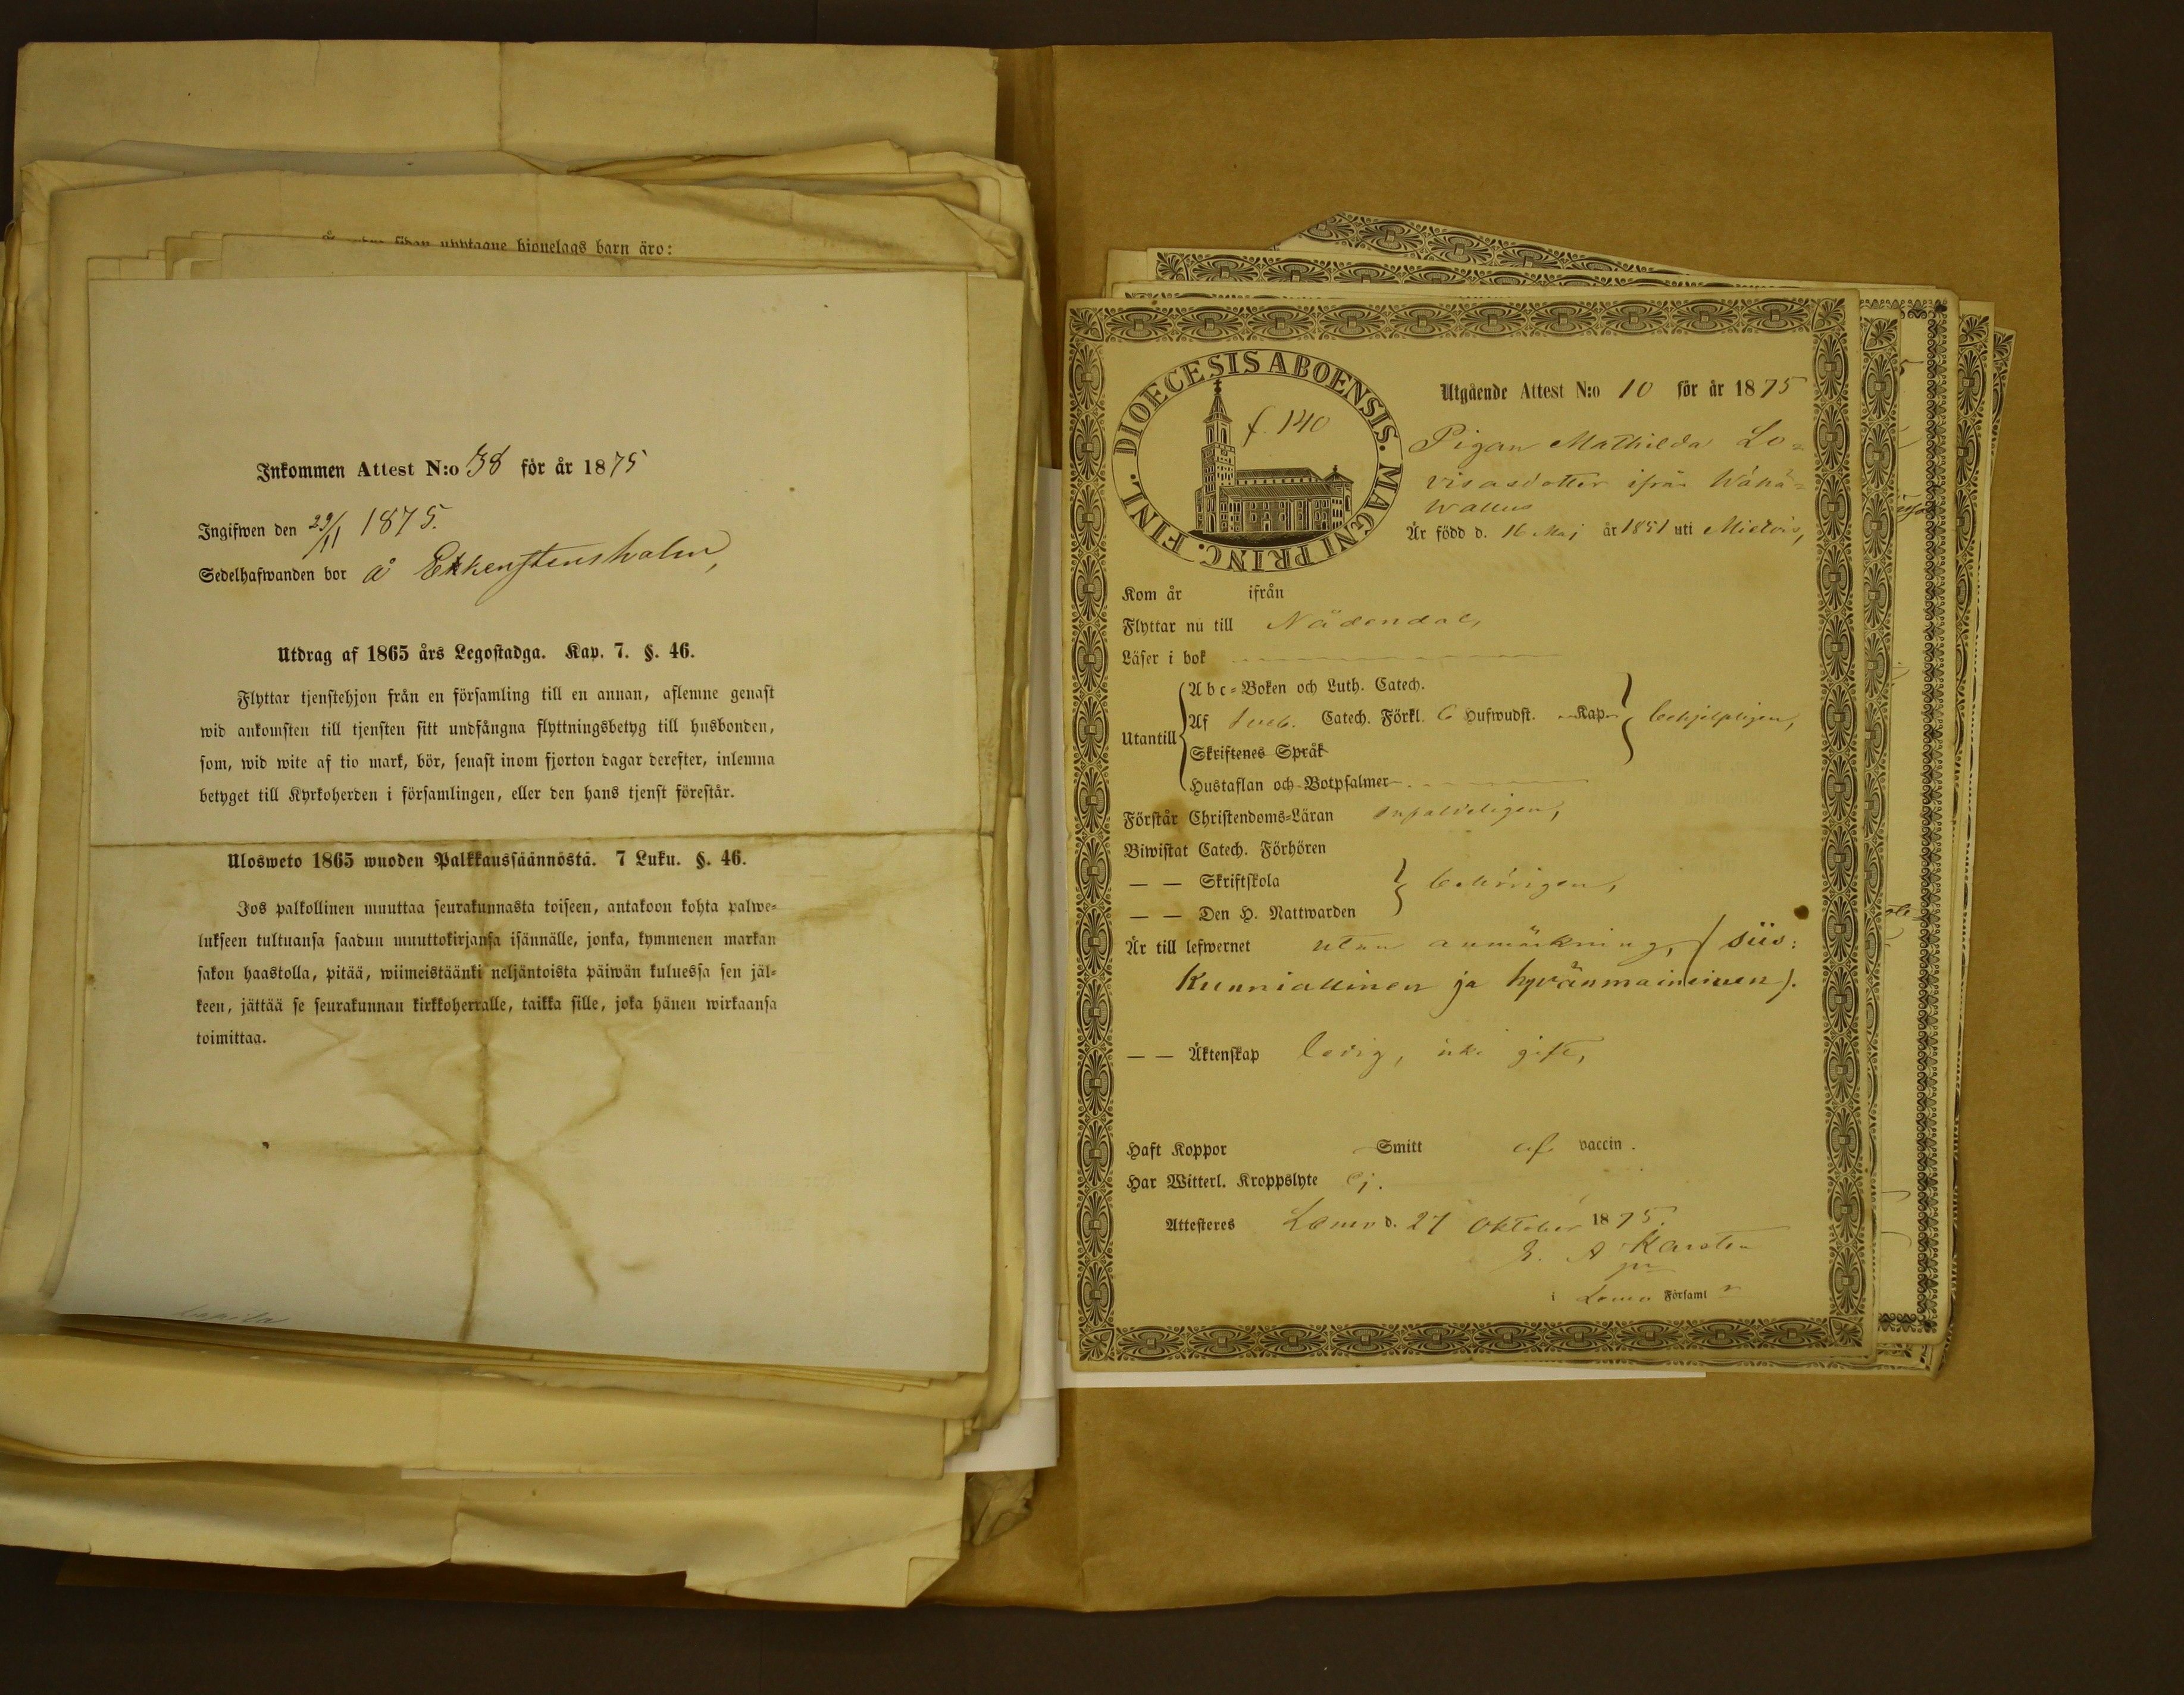 upptagne hionelags barn äro:
Inkommen Attest N:o 38 för år 1875
Ingifwen den 29/11 1875.
Sedelhafwanden bor å Ekkenstensholm,
Utdrag af 1865 års Legostadga. Kap. 7. §. 46.
Flyttar tjenstehjon från en församling till en annan, aflemne genast
wid ankomsten till tjensten sitt undfångna flyttningsbetyg till husbonden,
som, wid wite af tio mark, bör, senast inom fjorton dagar derefter, inlemna
betyget till Kyrkoherden i församlingen, eller den hans tjenst förestår.
Ulosweto 1865 wuoden Palkkaussäännöstä. 7 Luku. §. 46.
Jos palkollinen muuttaa seurakunnasta toiseen, antakoon kohta palwe-
lukseen tultuansa saadun muuttokirjansa isännälle, jonka, kymmenen markan
sakon haastolla, pitää, wiimeistäänki neljäntoista päiwän kuluessa sen jäl-
keen, jättää se seurakunnan kirkkoherralle, taikka sille, joka hänen wirkaansa
toimittaa.
DIOECESIS ABOENSIS. MAGNI PRINC. FINL.
f. 140
Utgående Attest N:o 10 för år 1875
Pigan Mathilda Lo-
visasdotter ifrån Wähä-
Wallus
Är född d. 16 Maj år 1851 uti Mietois,
Kom år ifrån
Flyttar nu till Nådendal,
Läser i bok
Utantill
Abc-Boken och Luth. Catech.
Af Sveb. Catech. Förkl. 6 Hufwudst. Kap. behjelpligen,
Skriftenes Språk
Hustaflan och Botpsalmer
Förstår Christendoms-Läran enfaldeligen,
Biwistat Catech. Förhören
— — Skriftskola behörigen,
— — Den H. Nattwarden
Är till lefwernet utan anmärkning, (siis:
Kunniallinen ja hyvänmaineinen).
— — Äktenskap ledig, icke gift,
Haft Koppor Smitt af vaccin.
Har Witterl. Kroppslyte Ej.
Attesteres Lemo d. 27 Oktober 1875.
E. A Karsten
i Lemo Församl